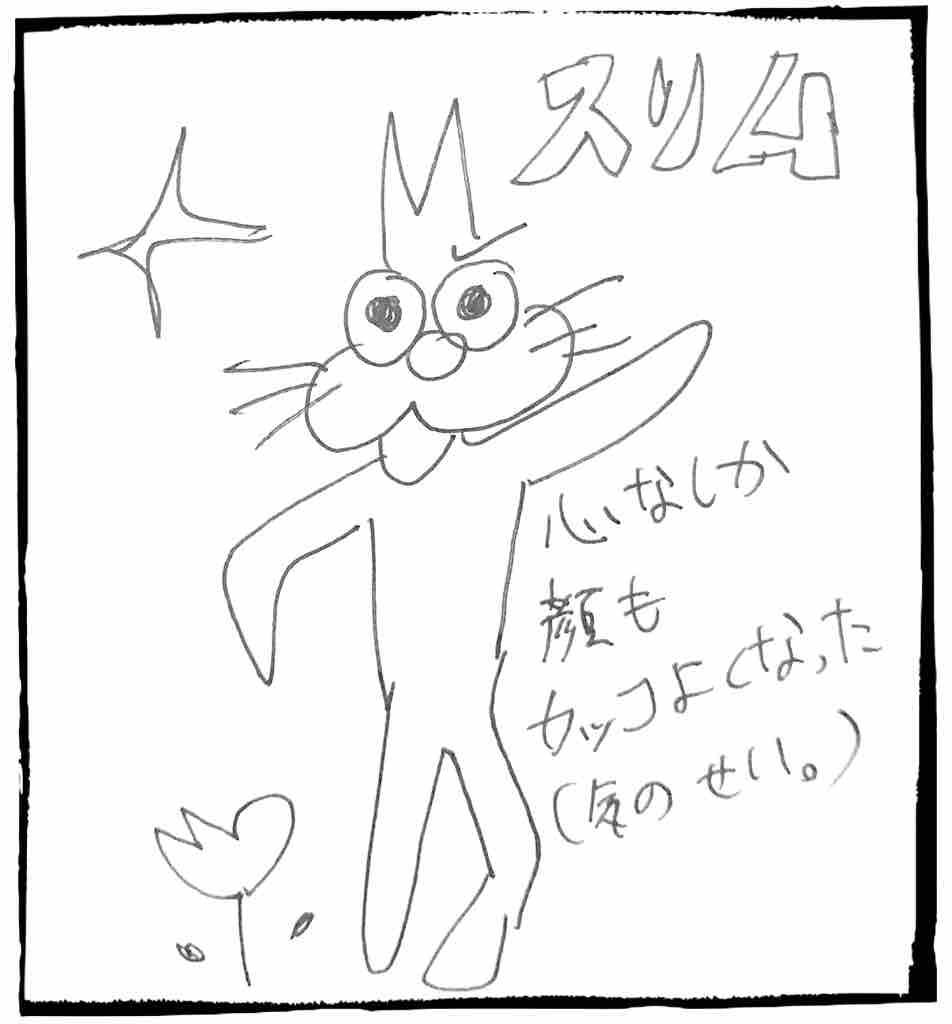 スリム
心なしか
顔も
カッコよくなった
(気のせい。)